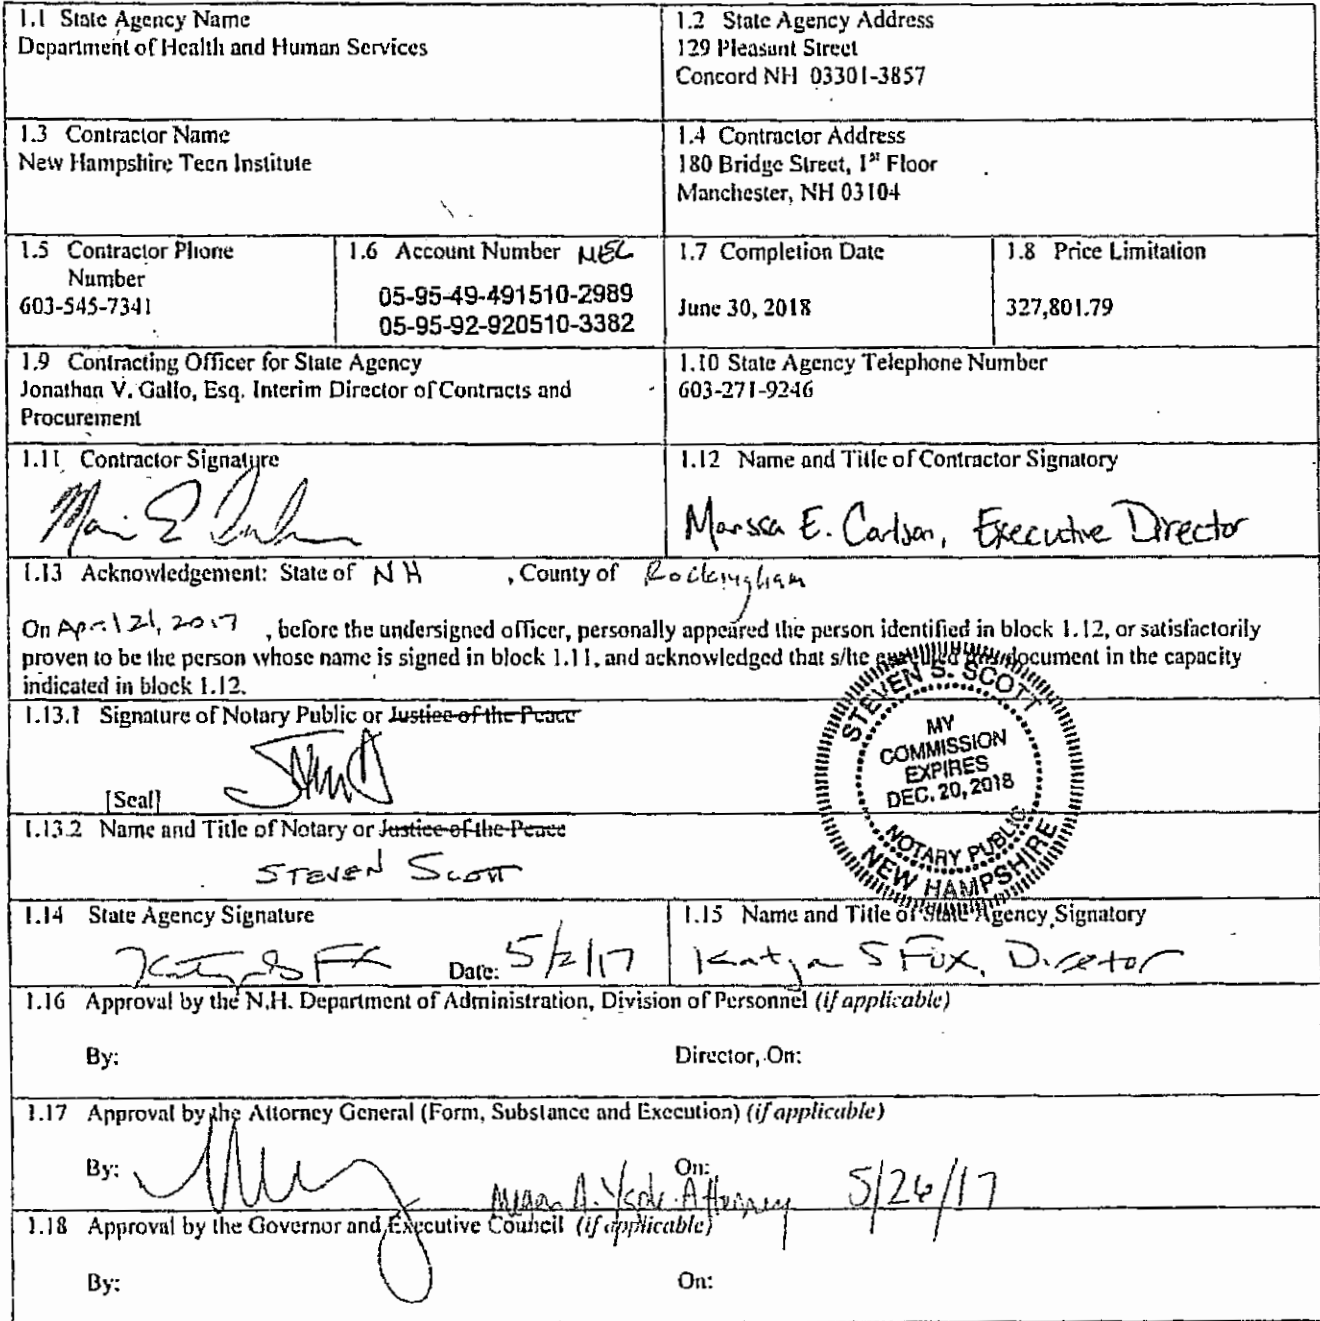 1.1 State Agency Name
Department of Health and Human Services
1.2 State Agency Address
129 Pleasant Street
Concord NH 03301-3857
1.3 Contractor Name
New Hampshire Teen Institute
1.4 Contractor Address
180 Bridge Street, 1st Floor
Manchester, NH 03104
1.5 Contractor Phone
Number
603-545-7341
1.6 Account Number
05-95-49-491510-2989
05-95-92-920510-3382
1.7 Completion Date
June 30, 2018
1.8 Price Limitation
327,801.79
1.9 Contracting Officer for State Agency
Jonathan V. Gallo, Esq. Interim Director of Contracts and
Procurement
1.10 State Agency Telephone Number
603-271-9246
1.11 Contractor Signature
1.12 Name and Title of Contractor Signatory
Marissa E. Carlson, Executive Director
1.13 Acknowledgement: State of NH , County of Rockingham
On April 21, 2017 , before the undersigned officer, personally appeared the person identified in block 1.12, or satisfactorily
proven to be the person whose name is signed in block 1.11, and acknowledged that s/he executed this document in the capacity
indicated in block 1.12.
1.13.1 Signature of Notary Public or Justice of the Peace
[Seal]
STEVEN S. SCOTT
MY
COMMISSION
EXPIRES
DEC. 20, 2018
NOTARY PUBLIC
NEW HAMPSHIRE
1.13.2 Name and Title of Notary or Justice of the Peace
STEVEN SCOTT
1.14 State Agency Signature
Date: 5/2/17
1.15 Name and Title of State Agency Signatory
Katja S Fox, Director
1.16 Approval by the N.H. Department of Administration, Division of Personnel (if applicable)
By:
Director, On:
1.17 Approval by the Attorney General (Form, Substance and Execution) (if applicable)
By:
On:
Megan A. Attorney 5/26/17
1.18 Approval by the Governor and Executive Council (if applicable)
By:
On: